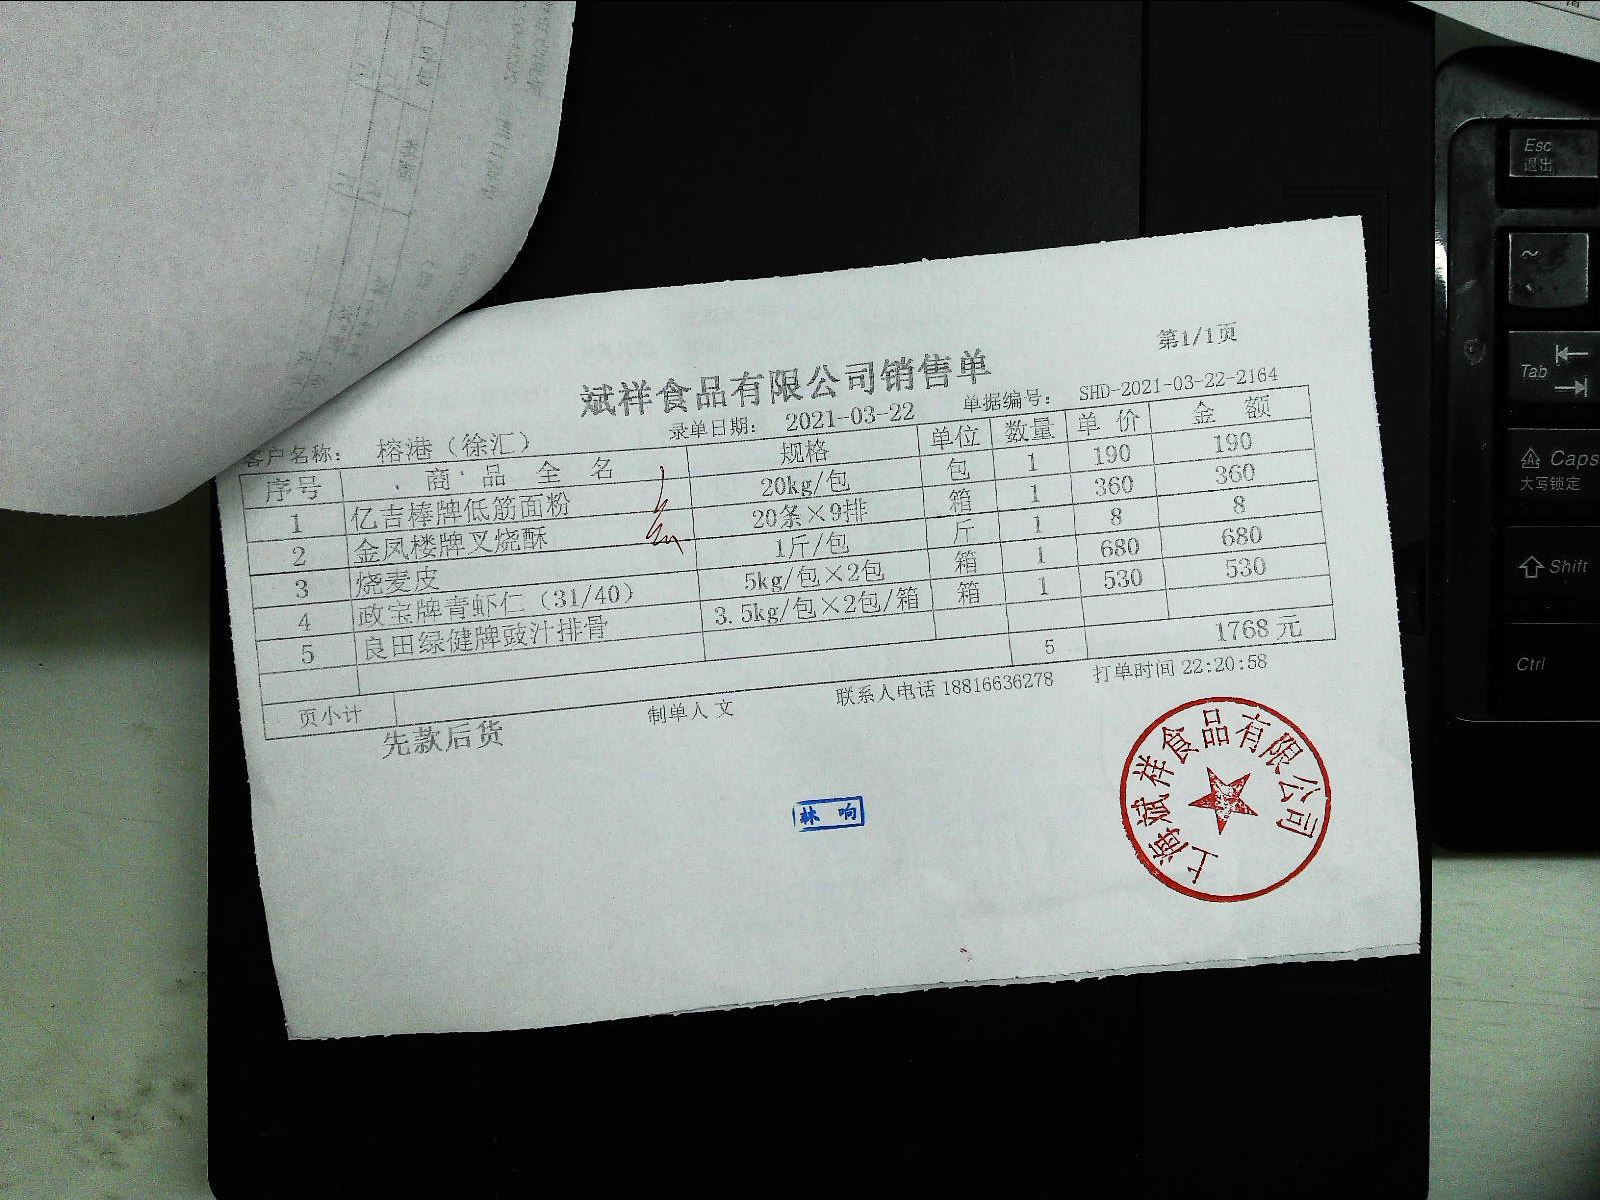 第1/1页
斌祥食品有限公司销售单
客户名称: 榕港（徐汇） 录单日期: 2021-03-22 单据编号: SHD-2021-03-22-2164
序号 商品全名 规格 单位 数量 单价 金额
1 亿吉棒牌低筋面粉 20kg/包 包 1 190 190
2 金凤楼牌叉烧酥 20条×9排 箱 1 360 360
3 烧麦皮 1斤/包 斤 1 8 8
4 政宝牌青虾仁（31/40） 5kg/包×2包 箱 1 680 680
5 良田绿健牌豉汁排骨 3.5kg/包×2包/箱 箱 1 530 530
页小计 5 1768元
先款后货 制单人 文 联系人电话 18816636278 打单时间 22:20:58
林响
上海斌祥食品有限公司
Esc
退出
~
Tab
Caps
大写锁定
Shift
Ctrl